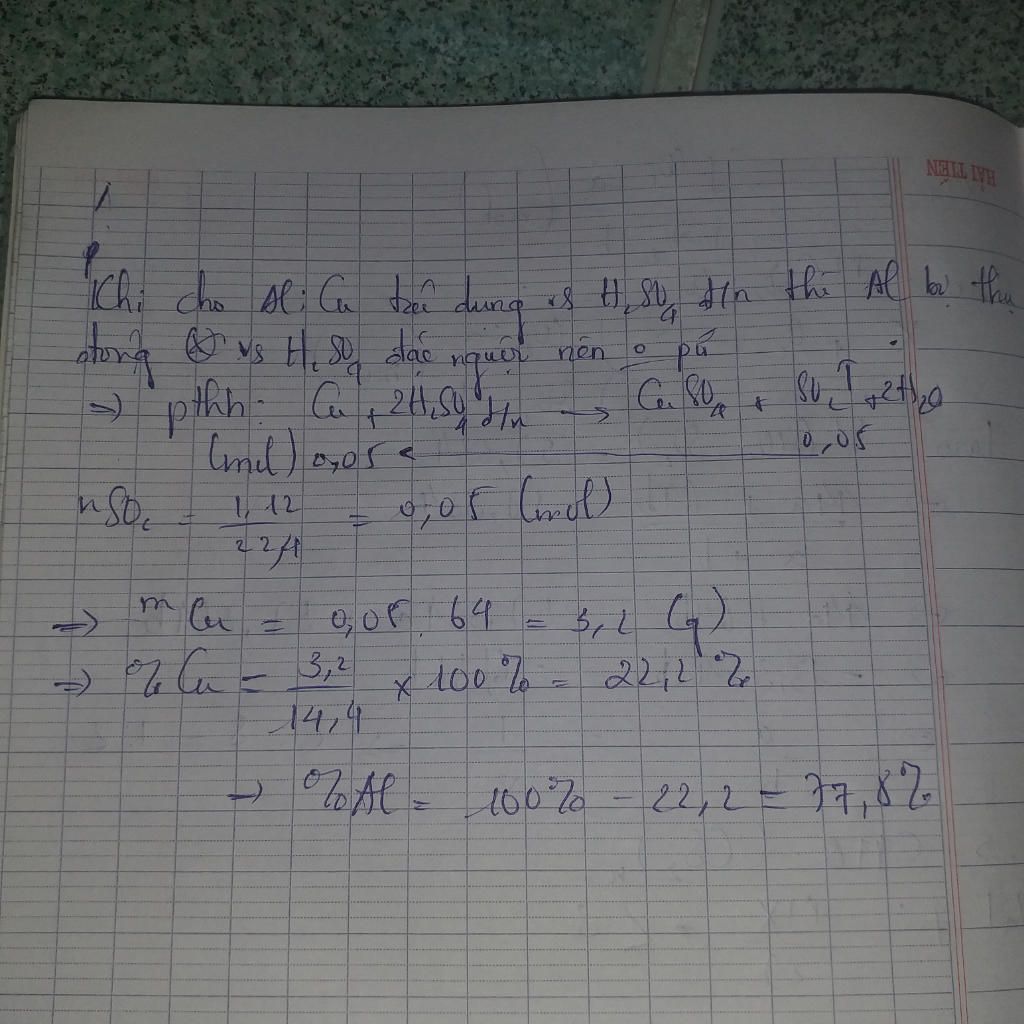 HẢI TIẾN
Khi cho Al; Cu tác dụng vs H₂SO₄ đ/n thì Al bị thụ
động vs H₂SO₄ đặc nguội nên o pứ
=> pthh: Cu + 2H₂SO₄ đ/n → CuSO₄ + SO₂↑ + 2H₂O
(mol) 0,05 ← 0,05
nSO₂ = 1,12/22,4 = 0,05 (mol)
=> mCu = 0,05 . 64 = 3,2 (g)
=> %Cu = 3,2/14,4 × 100% = 22,2 %
→ %Al = 100% - 22,2 = 77,8%